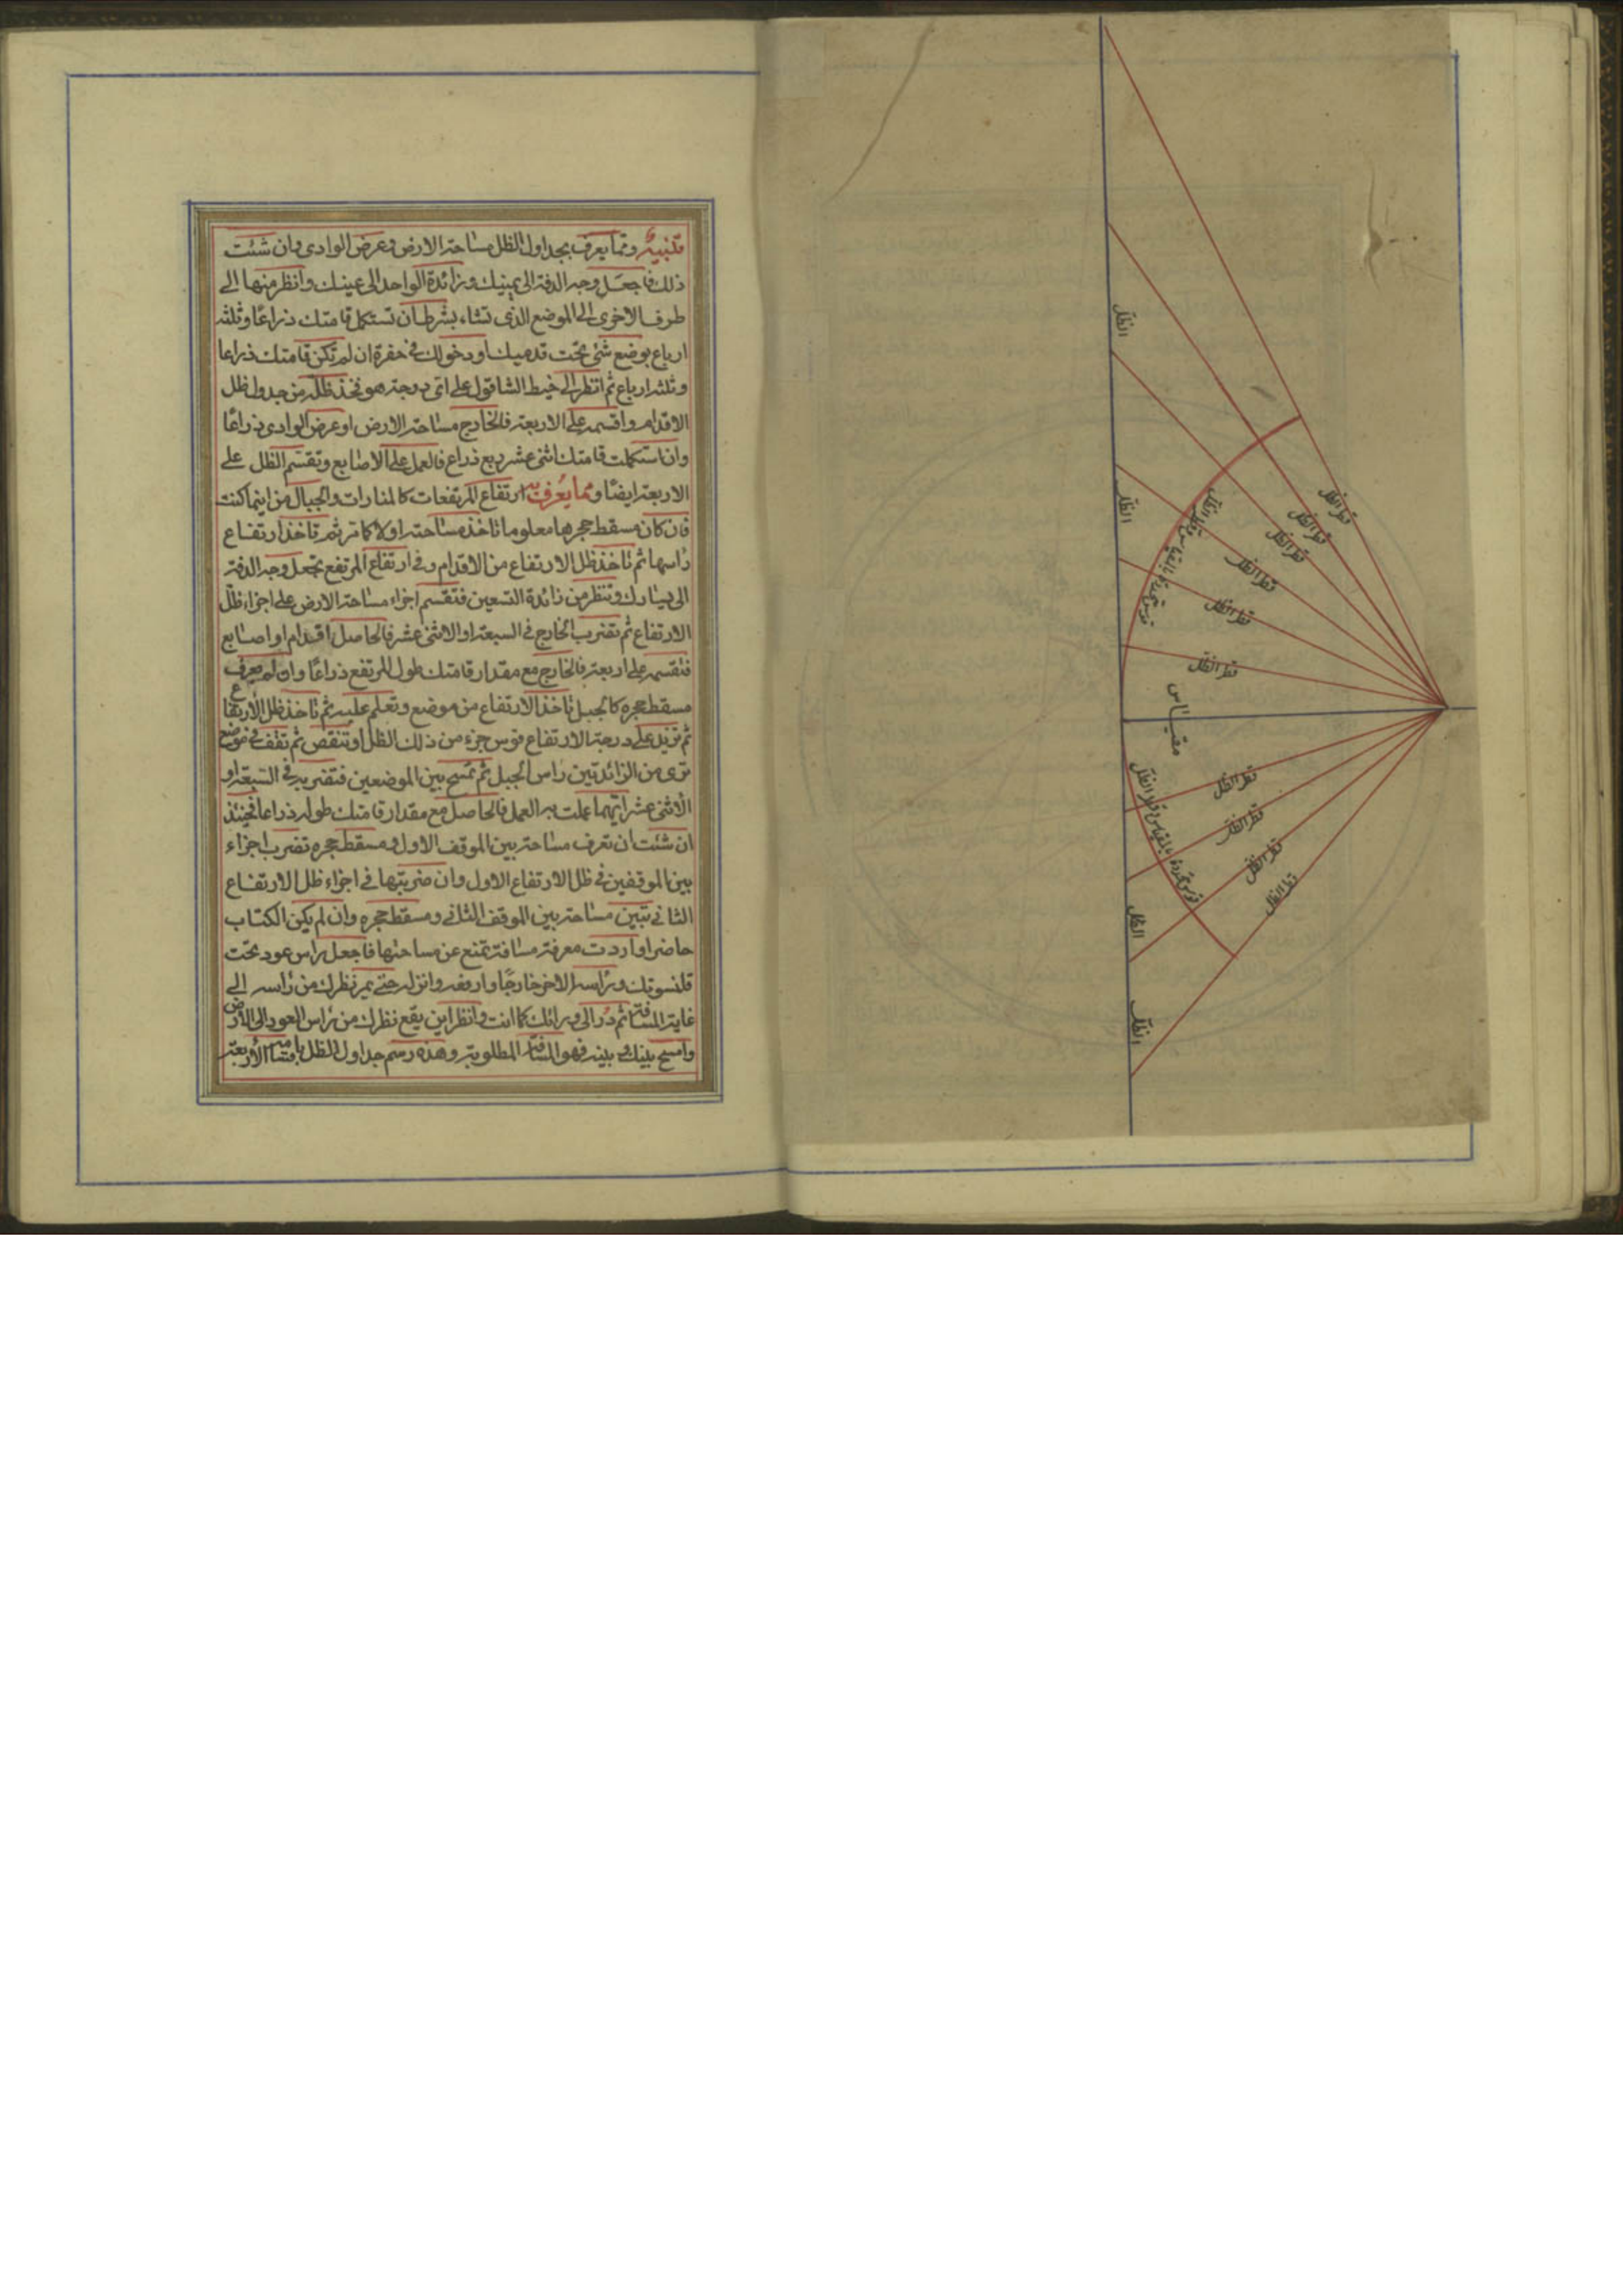 الظل
الظل
الظل
الظل
قطر الظل
قطر الظل
قطر الظل
قطر الظل
قطر الظل
قطر الظل
مقياس
قطر الظل
قطر الظل
قطر الظل
قطر الظل
تنبيه ومما يعرف بجداول الظل مساحة الارض وعرض الوادى وان شئت
ذلك فاجعل وجه الدفة الى يمينك وزائدة الواحد الى عينك وانظر منها الى
طرف الاخرى الى الموضع الذى تشاء بشرط ان تستكمل قامتك ذراعا وثلثة
ارباع بوضع شئ تحت قدميك او دخولك فى حفرة ان لم تكن قامتك ذراعا
وثلثه ارباع ثم انظر الى خيط الشاقول على اى درجة هو فخذ ظله من جدول ظل
الاقدام واقسمه على الاربعة فالخارج مساحة الارض او عرض الوادى ذراعا
وان استكملت قامتك اثنى عشر ربع ذراع فالعمل على الاصابع وتقسم الظل على
الاربعة ايضا ومما يعرف به ارتفاع المرتفعات كالمنارات والجبال من اينما كنت
فان كان مسقط حجرها معلوما تاخذ مساحته اولا كما مر ثم تاخذ ارتفاع
راسها ثم تاخذ ظل الارتفاع من الاقدام وفى ارتفاع المرتفع تجعل وجه الدفة
الى يسارك وتنظر من زائدة التسعين فتقسم اجزاء مساحة الارض على اجزاء ظل
الارتفاع ثم تضرب الخارج فى السبعة او الاثنى عشر فالحاصل اقدام او اصابع
فتقسمه على اربعة فالخارج مع مقدار قامتك طول المرتفع ذراعا وان لم يعرف
مسقط حجره كالجبل تاخذ الارتفاع من موضع وتعلم عليه ثم تاخذ ظل الارتفاع
ثم تزيد على درجة الارتفاع قوس جزء من ذلك الظل او تنقص ثم تقف فى موضع
ترى من الزائدتين راس الجبل ثم تمسح بين الموضعين فتضربه فى السبعة او
الاثنى عشر ايهما عملت به العمل فالحاصل مع مقدار قامتك طوله ذراعا فحينئذ
ان شئت ان تعرف مساحة بين الموقف الاول ومسقط حجره تضرب اجزاء
بين الموقفين فى ظل الارتفاع الاول وان ضربتها فى اجزاء ظل الارتفاع
الثانى تبين مساحة بين الموقف الثانى ومسقط حجره وان لم يكن الكتاب
حاضرا واردت معرفة مسافة تمنع عن مساحتها فاجعل راس عود تحت
قلنسوتك وراسه الاخر خارجا وارفعه وانزله حتى يمر نظرك من راسه الى
غاية المسافة ثم در الى ورائك كما انت وانظر اين يقع نظرك من راس العود الى الارض
وامسح بينك وبينه فهو المسافة المطلوبة وهذه رسم جداول الظل باقسامه الاربعة